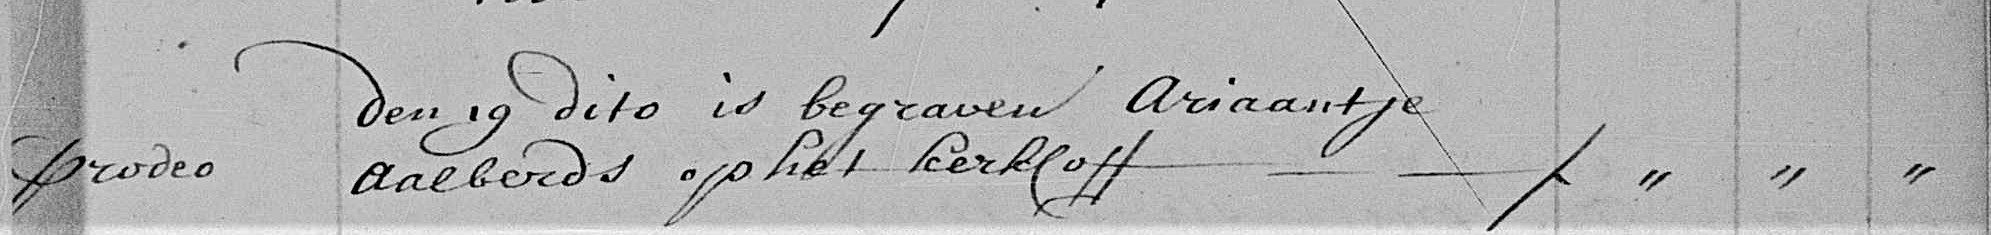 den 19 dito is begraven Ariaantje
prodeo Aalberds op het kerkhoff — — — ƒ " " "